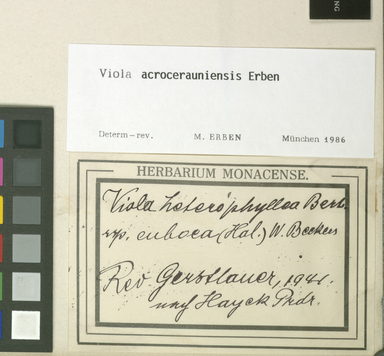 Viola acrocerauniensis Erben
Determ-rev. M. ERBEN München 1986
HERBARIUM MONACENSE.
Viola heterophylla Bert.
ssp. euboea (Hal.) W. Becker
Rev. Gerstlauer, 1941.
nach Hayek Prdr.